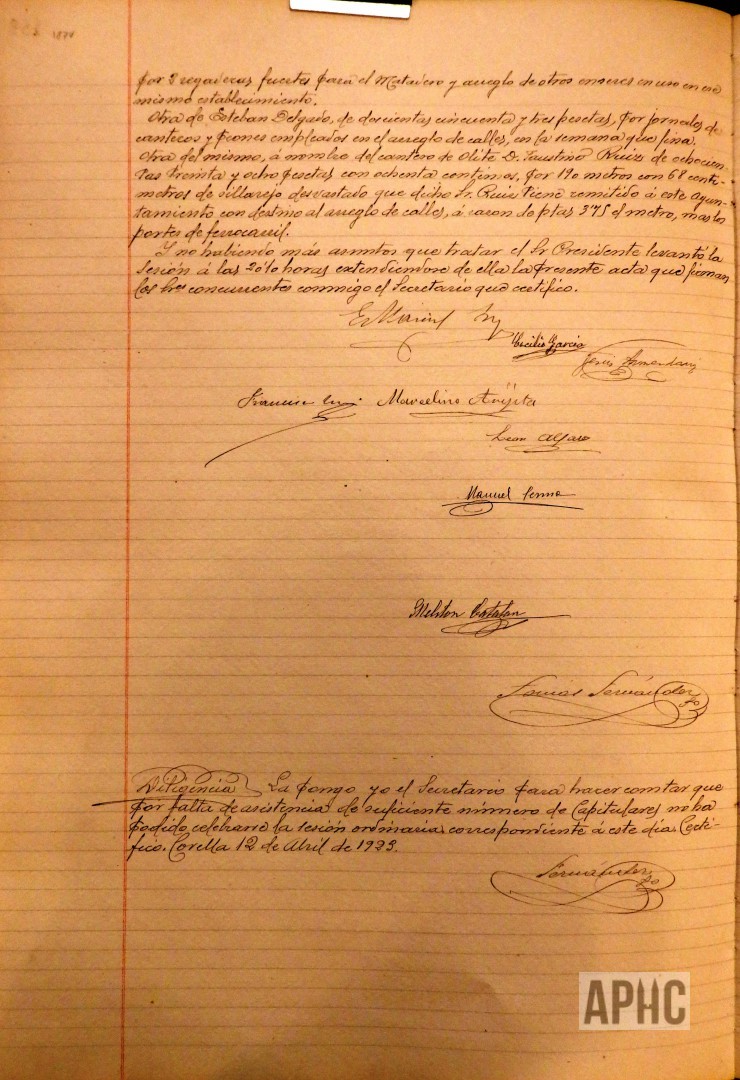 por 2 regaderas fuertes para el Matadero y arreglo de otros enseres en uso en ese
mismo establecimiento.
Otra de Esteban Delgado, de doscientas cincuenta y tres pesetas, por jornales de
canteros y peones empleados en el arreglo de calles, en la semana que fina.
Otra del mismo, á nombre del cantero de Olite D. Faustino Ruiz de ochocien-
tas treinta y ocho pesetas con ochenta centimos, por 190 metros con 68 centi-
metros de villarejo desvastado que dicho Sr. Ruiz tiene remitido á este Ayun-
tamiento con destino al arreglo de calles, á razon de ptas 3'75 el metro, mas los
portes de ferrocarril.
Y no habiendo más asuntos que tratar el Sr. Presidente levantó la
sesión á las 20'10 horas extendiendose de ella la presente acta que firman
los Sres concurrentes conmigo el Secretario que certifico.
Cecilio Garcia
Jesús Armendariz
Marcelino Arigita
Leon Alfaro
Manuel
Meliton Catalan
Fernández
Diligencia La pongo yo el Secretario para hacer constar que
por falta de asistencia de suficiente número de Capitulares no ha
podido celebrarse la sesión ordinaria correspondiente á este día. Certi-
fico. Corella 12 de Abril de 1933.
Fernández
APHC